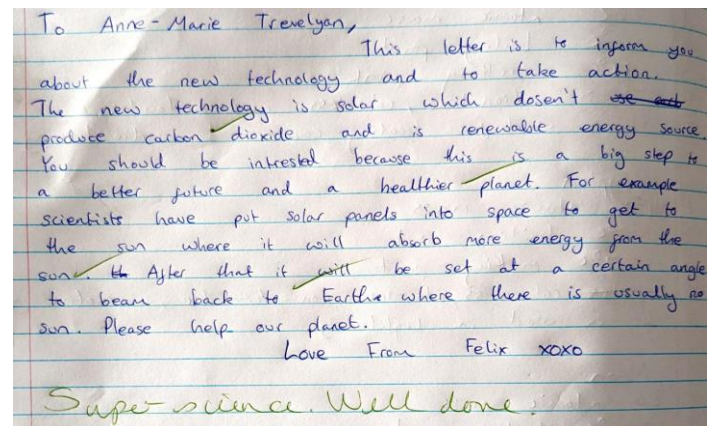 To Anne-Marie Trevelyan,
This letter is to inform you
about the new technology and to take action.
The new technology is solar which dosen't
produce carbon dioxide and is renewable energy source
You should be intrested because this is a big step to
a better future and a healthier planet. For example
scientists have put solar panels into space to get to
the sun where it will absorb more energy from the
sun. After that it will be set at a certain angle
to beam back to Earth where there is usually no
sun. Please help our planet.
Love From Felix xoxo
Super science. Well done.